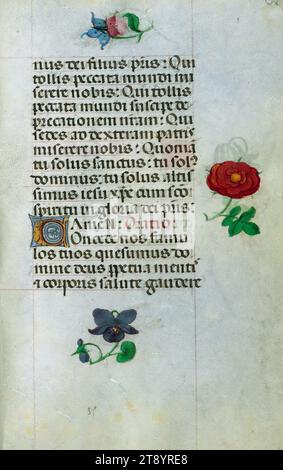 nus dei filius pr̃is: Qui
tollis peccata mundi mi
serere nobis: Qui tollis
peccata mundi suscipe de
precationem nr̃am: Qui
sedes ad dexteram patis
miserere nobis: Quoniã
tu solus sanctus: tu sol9
dominus, tu solus altis
simus iesu xp̃e cum sc̃o
spiritu in gloria dei pr̃is:
Amen: Oratio:
Concede nos famu
los tuos quesumus do
mine deus ꝑpetua mentis
et corporis salute gaudere
alamy
www.alamy.com
2T8YRE8